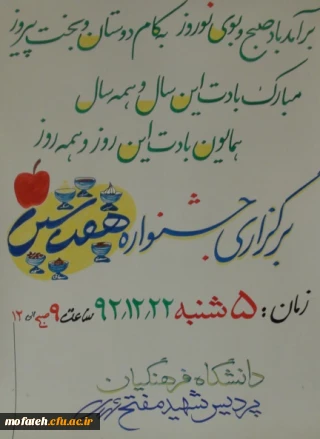 برآمد باد صبح و بوی نوروز به کام دوستان و بخت پیروز
مبارک بادت این سال و همه سال
همایون بادت این روز و همه روز
برگزاری جشنواره هفت سین
زمان: ۵ شنبه ۹۲٫۱۲٫۲۲ ساعت ۹ صبح الی ۱۲
دانشگاه فرهنگیان
پردیس شهید مفتح شهرری
mofateh.cfu.ac.ir